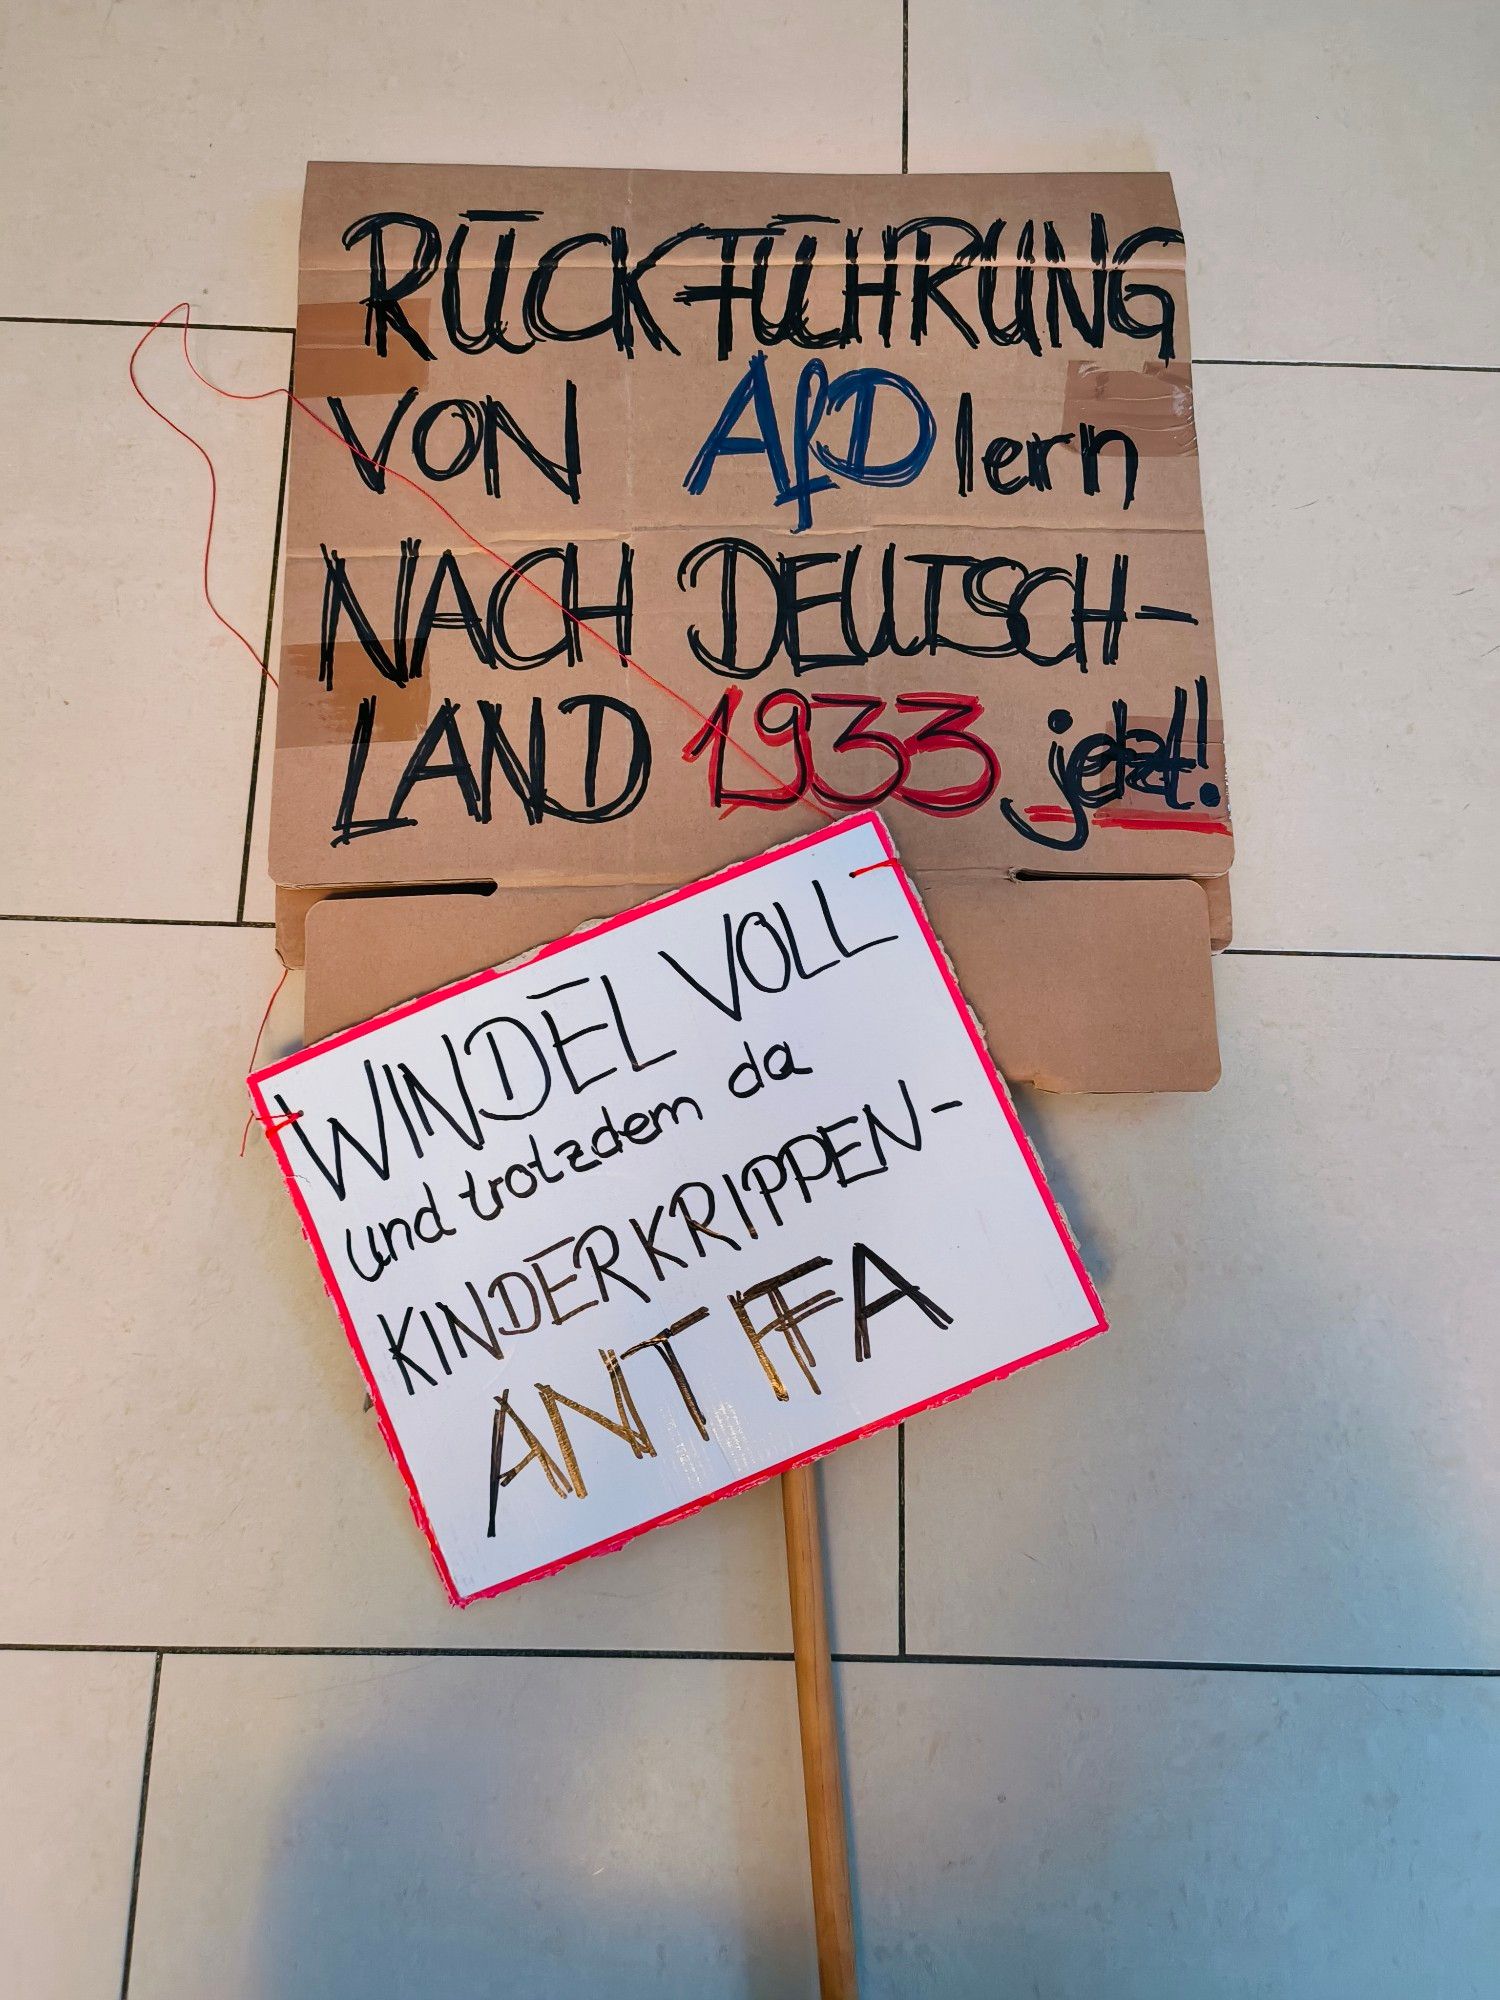 RÜCKFÜHRUNG
VON AfDlern
NACH DEUTSCH-
LAND 1933 jetzt!
WINDEL VOLL
und trotzdem da
KINDERKRIPPEN-
ANTIFA